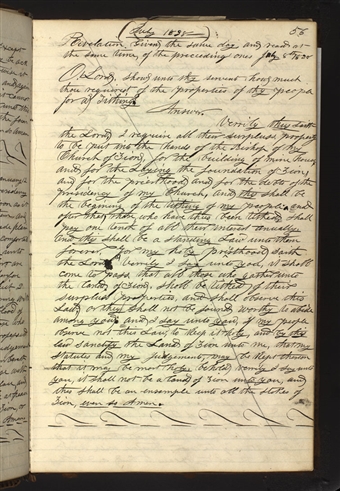 July 1838
56
Revelation, Given the same day, and read at
the same time, of the preceding ones July 8th 1838
O Lord, Shew unto thy servent how much
thou requirest of the properties of thy people
for a Tithing
Answer.
Verrily thus saith
the Lord, I require all their surpluss property
to be put into the hands of the Bishop of my
Church of Zion, for the building of mine House,
and for the Laying the foundation of Zion,
and for the priesthood, and for the debts of the
presidency of my Church, and this shall be
the begining of the tithing of my people and
after that, those, who have thus been tithed, shall
pay one tenth of all their interest annually.
And this shall be a standing Law unto them
forever, for my Holy priesthood, saith
the Lord, Verrily I say unto you, it shall
come to pass, that all those who gather unto
the land of Zion, shall be tithed of their
surpluss properties, and shall observe this
Law, or they shall not be found worthy to abide
among you. And I say unto you, if my people
observe not this Law, to keep it holy, and by this
law sanctify the Land of Zion unto me, that my
statutes and my judgements, may be kept thereon
that it may be most holy, behold verrily I say unto
you, it shall not be a land of Zion unto you, and
this shall be an ensample unto all the stakes of
Zion, even so Amen.